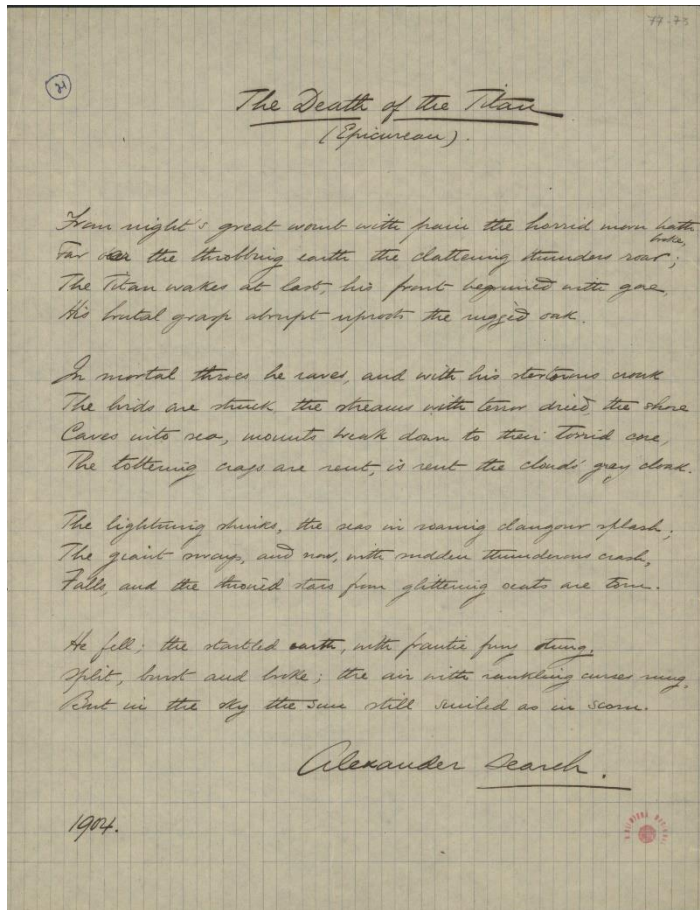 77-75
21
The Death of the Titan
(Epicurean).
From night's great womb with pain the horrid morn hath broke,
Far o'er the throbbing earth the clattering thunders roar;
The Titan wakes at last, his front begrimed with gore,
His brutal grasp abrupt uproots the rugged oak.
In mortal throes he raves, and with his stertorous croak
The birds are struck, the streams with terror dried, the shore
Caves into sea, mounts break down to their torrid core,
The tottering crags are rent, is rent the clouds' grey cloak.
The lightning shrinks, the seas in roaring clangour splash;
The giant sways, and now, with sudden thunderous crash,
Falls, and the throned stars from glittering seats are torn.
He fell; the startled earth, with frantic fury stung,
Split, burst and broke; the air with rankling curses rung,
But in the sky the sun still smiled as in scorn.
Alexander Search.
1904.